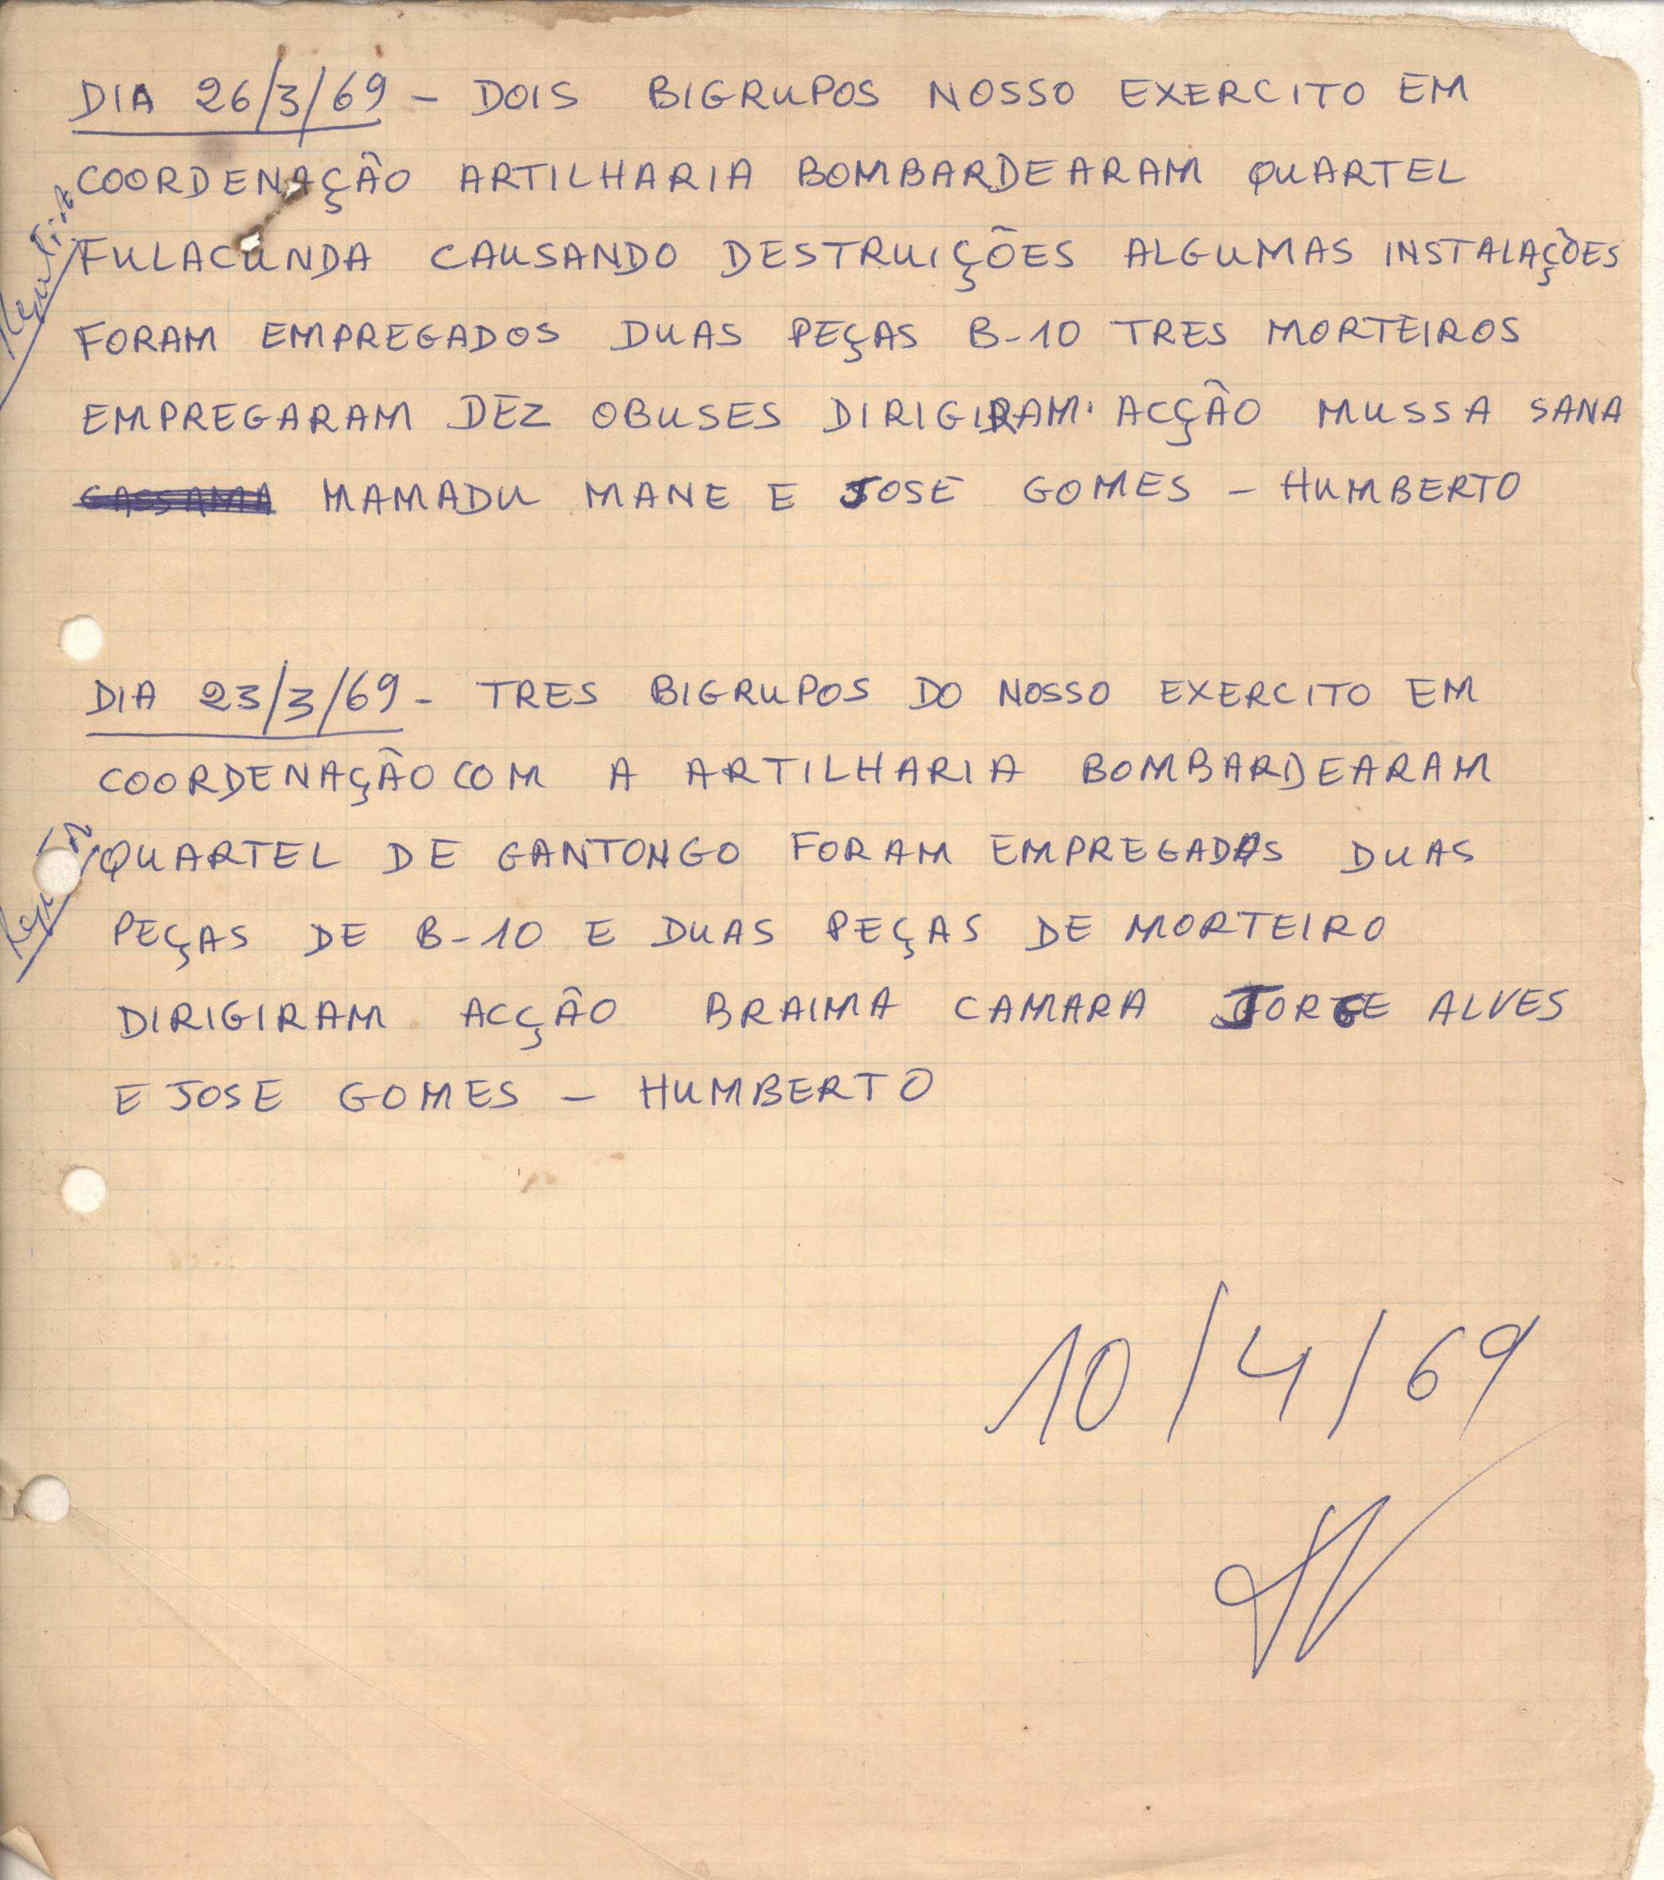 DIA 26/3/69 - DOIS BIGRUPOS NOSSO EXERCITO EM
COORDENAÇÃO ARTILHARIA BOMBARDEARAM QUARTEL
FULACUNDA CAUSANDO DESTRUIÇÕES ALGUMAS INSTALAÇÕES
FORAM EMPREGADOS DUAS PEÇAS B-10 TRES MORTEIROS
EMPREGARAM DEZ OBUSES DIRIGIRAM ACÇÃO MUSSA SANA
MAMADU MANE E JOSE GOMES - HUMBERTO
DIA 23/3/69 - TRES BIGRUPOS DO NOSSO EXERCITO EM
COORDENAÇÃO COM A ARTILHARIA BOMBARDEARAM
QUARTEL DE GANTONGO FORAM EMPREGADAS DUAS
PEÇAS DE B-10 E DUAS PEÇAS DE MORTEIRO
DIRIGIRAM ACÇÃO BRAIMA CAMARA JORGE ALVES
E JOSE GOMES - HUMBERTO
10/4/69